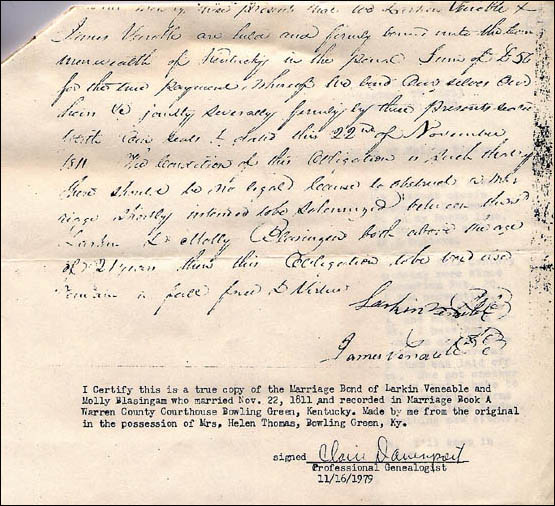 these presents that we Larkin Venable &
James Venable are held and firmly bound unto the Com
monwealth of Kentucky in the penal Sum of £50
for the true payment whereof we bind our selves our
heirs &c jointly severally firmly by these presents sealed
with our seals & dated this 22nd of November
1811 The Condition of this Obligation is such that if
there should be no legal Cause to obstruct a mar
riage shortly intended to be solemnized between the
Larkin & Molly Blasingem both above the age
of 21 years then this Obligation to be void else
remain in full force & Virtue
Larkin Venable
James Venable
I Certify this is a true copy of the Marriage Bond of Larkin Veneable and
Molly Blasingam who married Nov. 22, 1811 and recorded in Marriage Book A
Warren County Courthouse Bowling Green, Kentucky. Made by me from the original
in the possession of Mrs, Helen Thomas, Bowling Green, Ky.
signed Clair Davenport
Professional Genealogist
11/16/1979